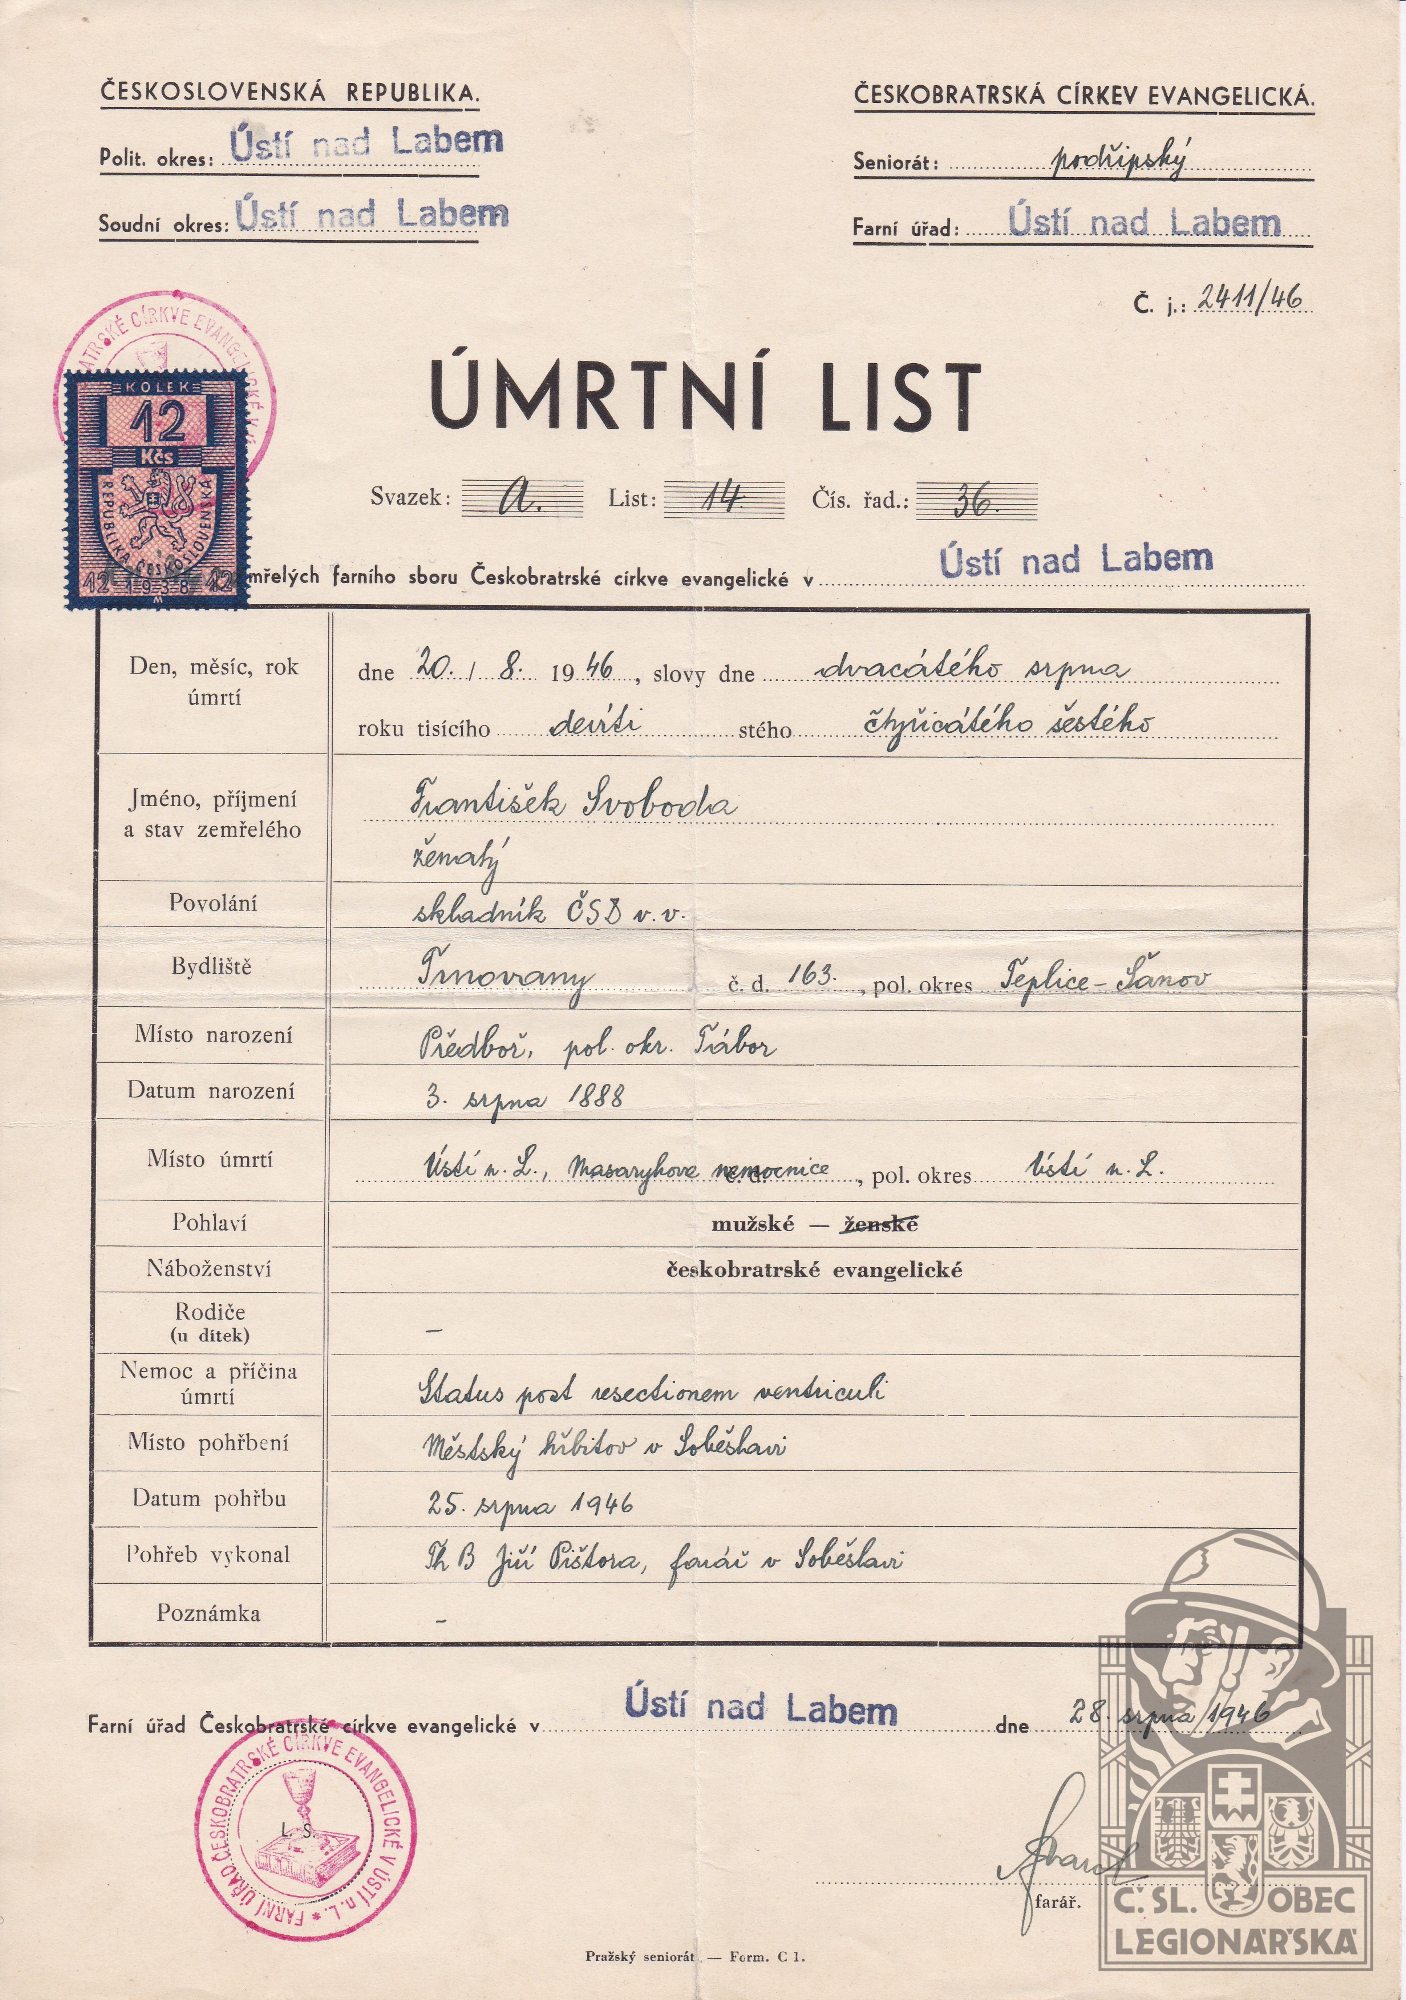 ČESKOSLOVENSKÁ REPUBLIKA.
Polit. okres: Ústí nad Labem
Soudní okres: Ústí nad Labem
ČESKOBRATRSKÁ CÍRKEV EVANGELICKÁ.
Seniorát: podřipský
Farní úřad: Ústí nad Labem
Č. j.: 2411/46
ATRSKÉ CÍRKVE EVANGELICKÉ V Ú
KOLEK
12
Kčs
REPUBLIKA ČESKOSLOVENSKÁ
12 1938 12
M
ÚMRTNÍ LIST
Svazek: A. List: 14. Čís. řad.: 36.
mřelých farního sboru Českobratrské církve evangelické v Ústí nad Labem
Den, měsíc, rok úmrtí
dne 20. / 8. 1946, slovy dne dvacátého srpna
roku tisícího devíti stého čtyřicátého šestého
Jméno, příjmení a stav zemřelého
František Svoboda
ženatý
Povolání skladník ČSD v. v.
Bydliště Trnovany č. d. 163., pol. okres Teplice-Šanov
Místo narození Předboř, pol. okr. Tábor
Datum narození 3. srpna 1888
Místo úmrtí Ústí n. L., Masarykova nemocnice č. d. , pol. okres Ústí n. L.
Pohlaví mužské — ženské
Náboženství českobratrské evangelické
Rodiče (u dítek) –
Nemoc a příčina úmrtí Status post resectionem ventriculi
Místo pohřbení Městský hřbitov v Soběslavi
Datum pohřbu 25. srpna 1946
Pohřeb vykonal ThB Jiří Pištora, farář v Soběslavi
Poznámka –
Farní úřad Českobratrské církve evangelické v Ústí nad Labem dne 28. srpna 1946
FARNÍ ÚŘAD ČESKOBRATRSKÉ CÍRKVE EVANGELICKÉ V ÚSTÍ n. L. *
L. S.
farář.
Č. SL. OBEC
LEGIONÁŘSKÁ
Pražský seniorát. — Form. C 1.